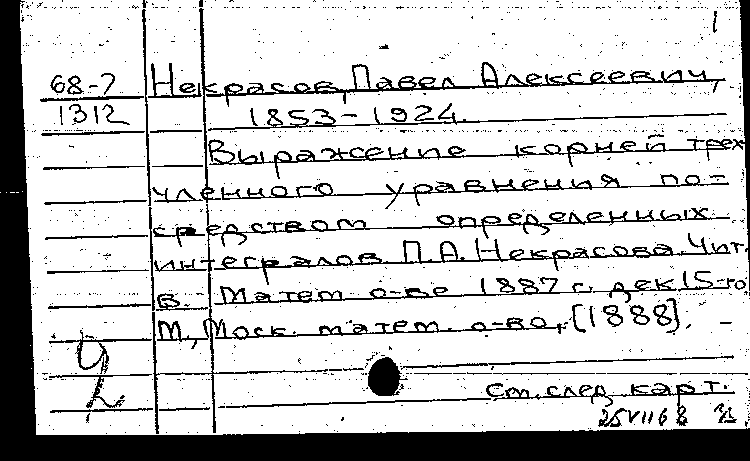 1
68-7 Некрасов, Павел Алексеевич,
1312 1853-1924.
Выражение корней трех
членного уравнения по=
средством определенных
интегралов П.А. Некрасова. Чит.
в. Матем о-ве 1887 г. дек. 15-го
М., Моск. матем. о-во, [1888]. –
См. след карт.
25 VII 68